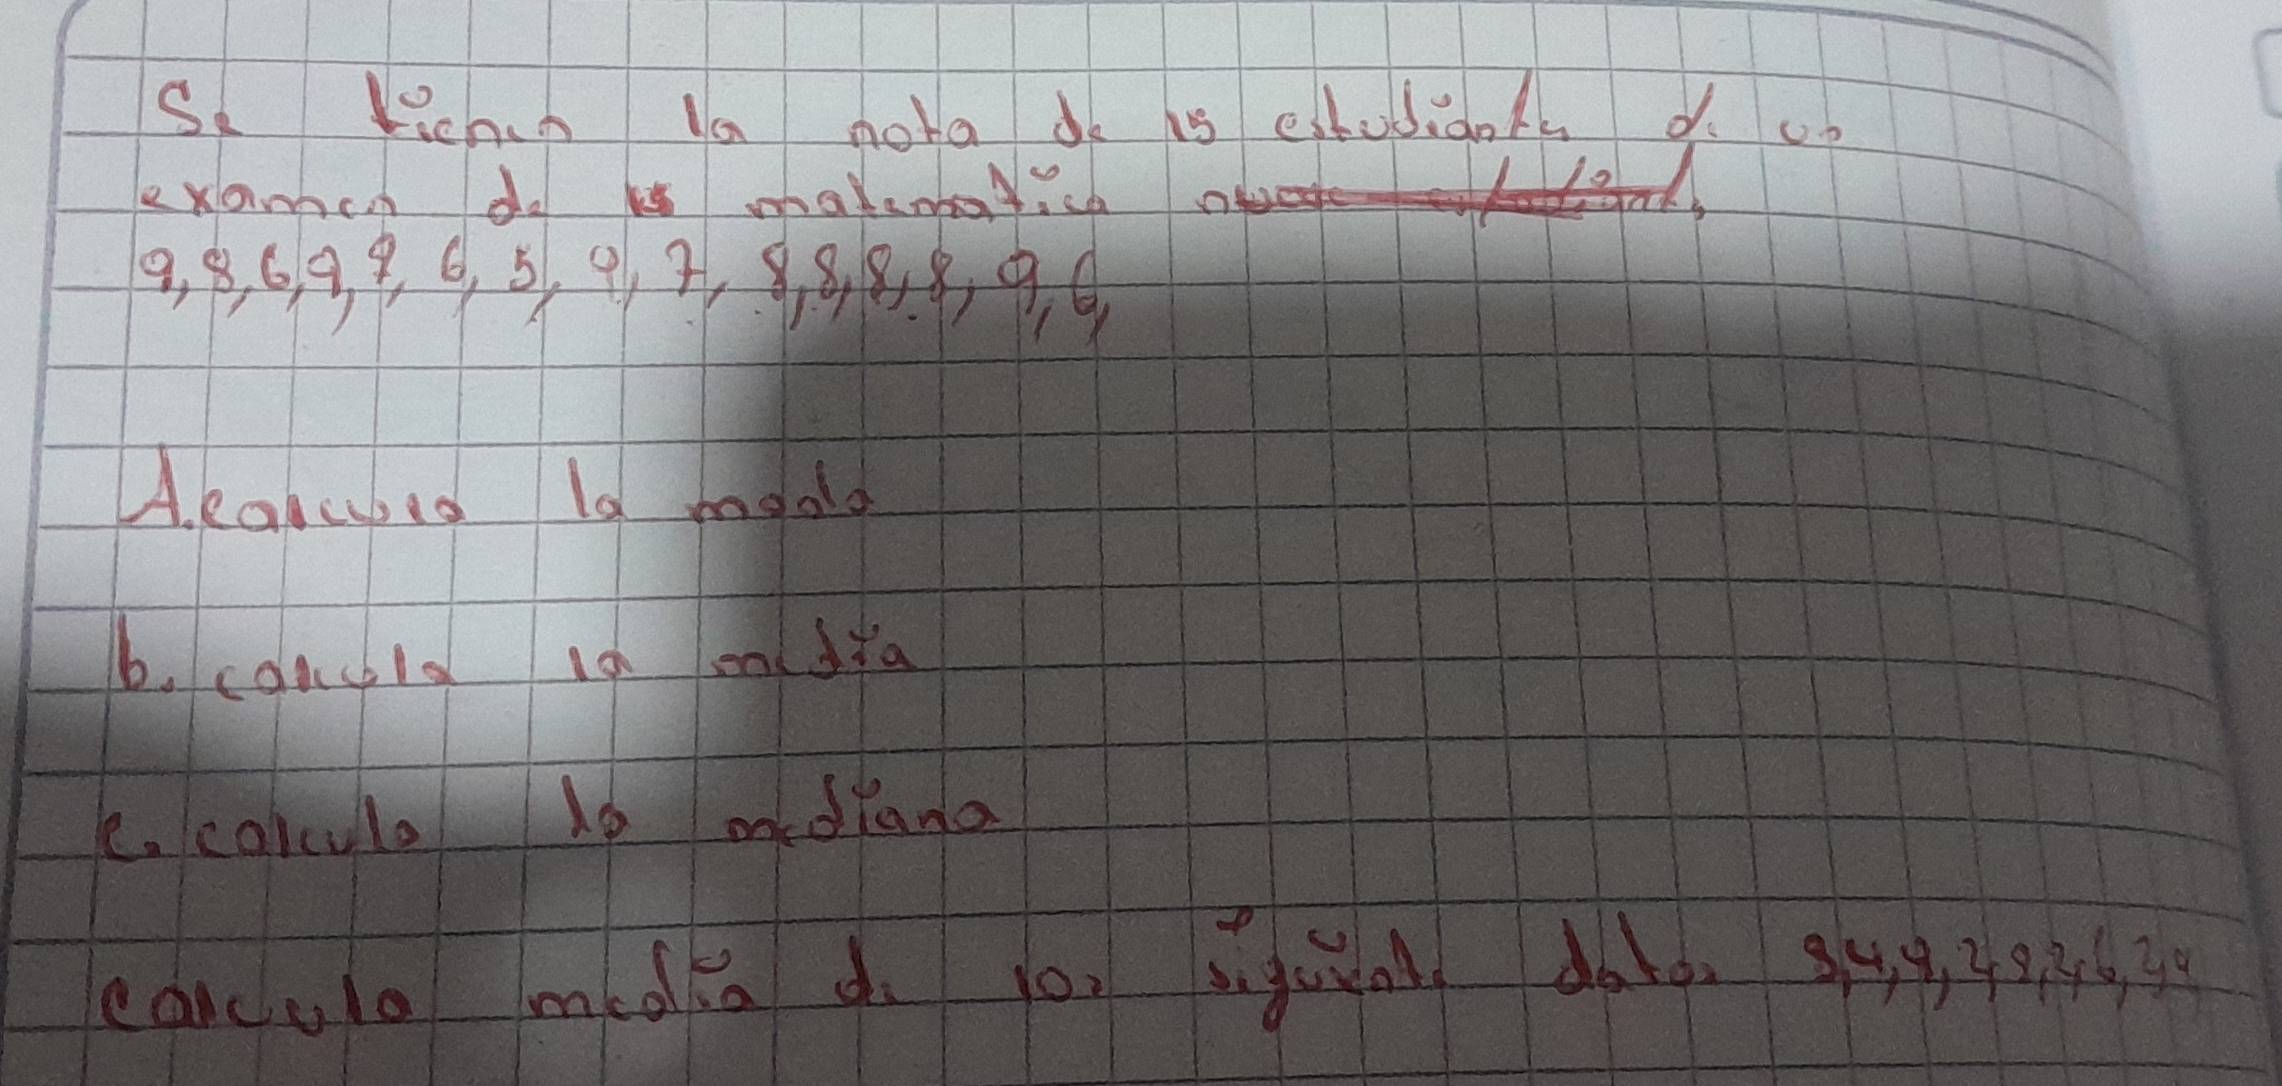 Se tienen la nota de 15 estudiantes de un
examen de matematica
9, 8, 6, 9, 9, 6, 5, 9, 7, 8, 8, 8, 8, 9, 6,
A. calcula la moda
b. calcula la media
c. calcula la mediana
calcula media de los siguiente datos